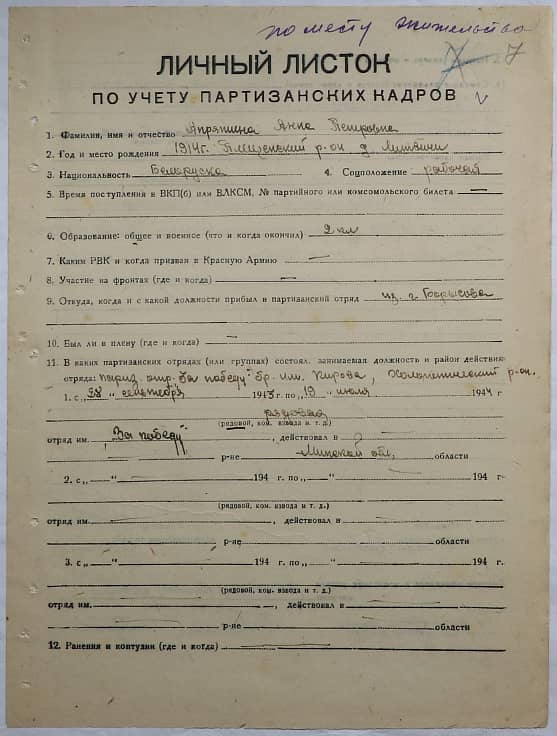 по месту жительства
7
ЛИЧНЫЙ ЛИСТОК
ПО УЧЕТУ ПАРТИЗАНСКИХ КАДРОВ
1. Фамилия, имя и отчество Апряткина Анна Петровна
2. Год и место рождения 1914г. р-он д. Литвичи
3. Национальность Белоруска 4. Соцположение рабочая
5. Время поступления в ВКП(б) или ВЛКСМ, № партийного или комсомольского билета —
6. Образование: общее и военное (что и когда окончил) 2 кл
7. Каким РВК и когда призван в Красную Армию —
8. Участие на фронтах (где и когда) —
9. Откуда, когда и с какой должности прибыл в партизанский отряд из г. Борисова
10. Был ли в плену (где и когда) —
11. В каких партизанских отрядах (или группах) состоял, занимаемая должность и район действия
отряда: отр. За победу бр. им. Кирова, Холопеничский р-он.
1. с „ “ сентября 1943 г. по „19 “ июля 1944 г
рядовая
(рядовой, ком. взвода и т. д.)
отряд им. „За победу“ , действовал в
р-не Минской обл. области
2. с „ — “ 194 г. по „ — “ 194 г.
(рядовой, ком. взвода и т. д.)
отряд им. , действовал в
р-не области
3. с „ — “ 194 г. по „ — “ 194 г.
(рядовой, ком. взвода и т. д.)
отряд им. , действовал в
р-не области
12. Ранения и контузии (где и когда) —